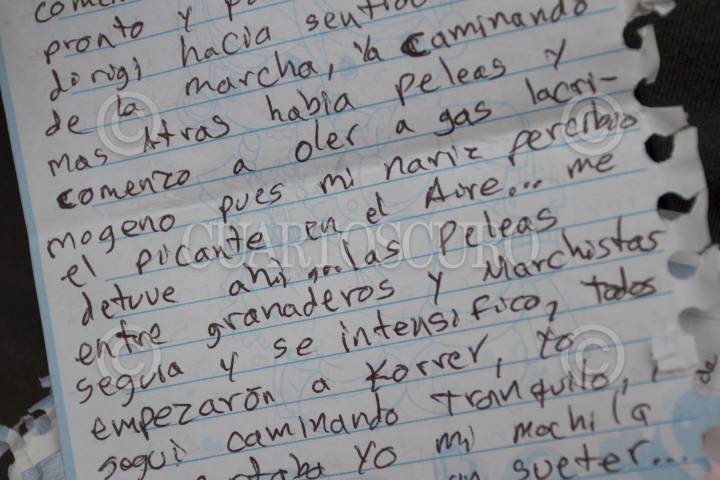 pronto y
dirigi hacia sentido
de la marcha, ya caminando
mas Atras habia peleas y
comenzo a oler a gas lacri-
mogeno pues mi nariz percibio
el picante en el Aire... me
detuve ahi ... las peleas
entre granaderos y Marchistas
seguia y se intensifico, todos
empezarón a Korrer, Yo
segui caminando tranquilo,
Yo mi mochila
sueter...
de
CUARTOSCURO